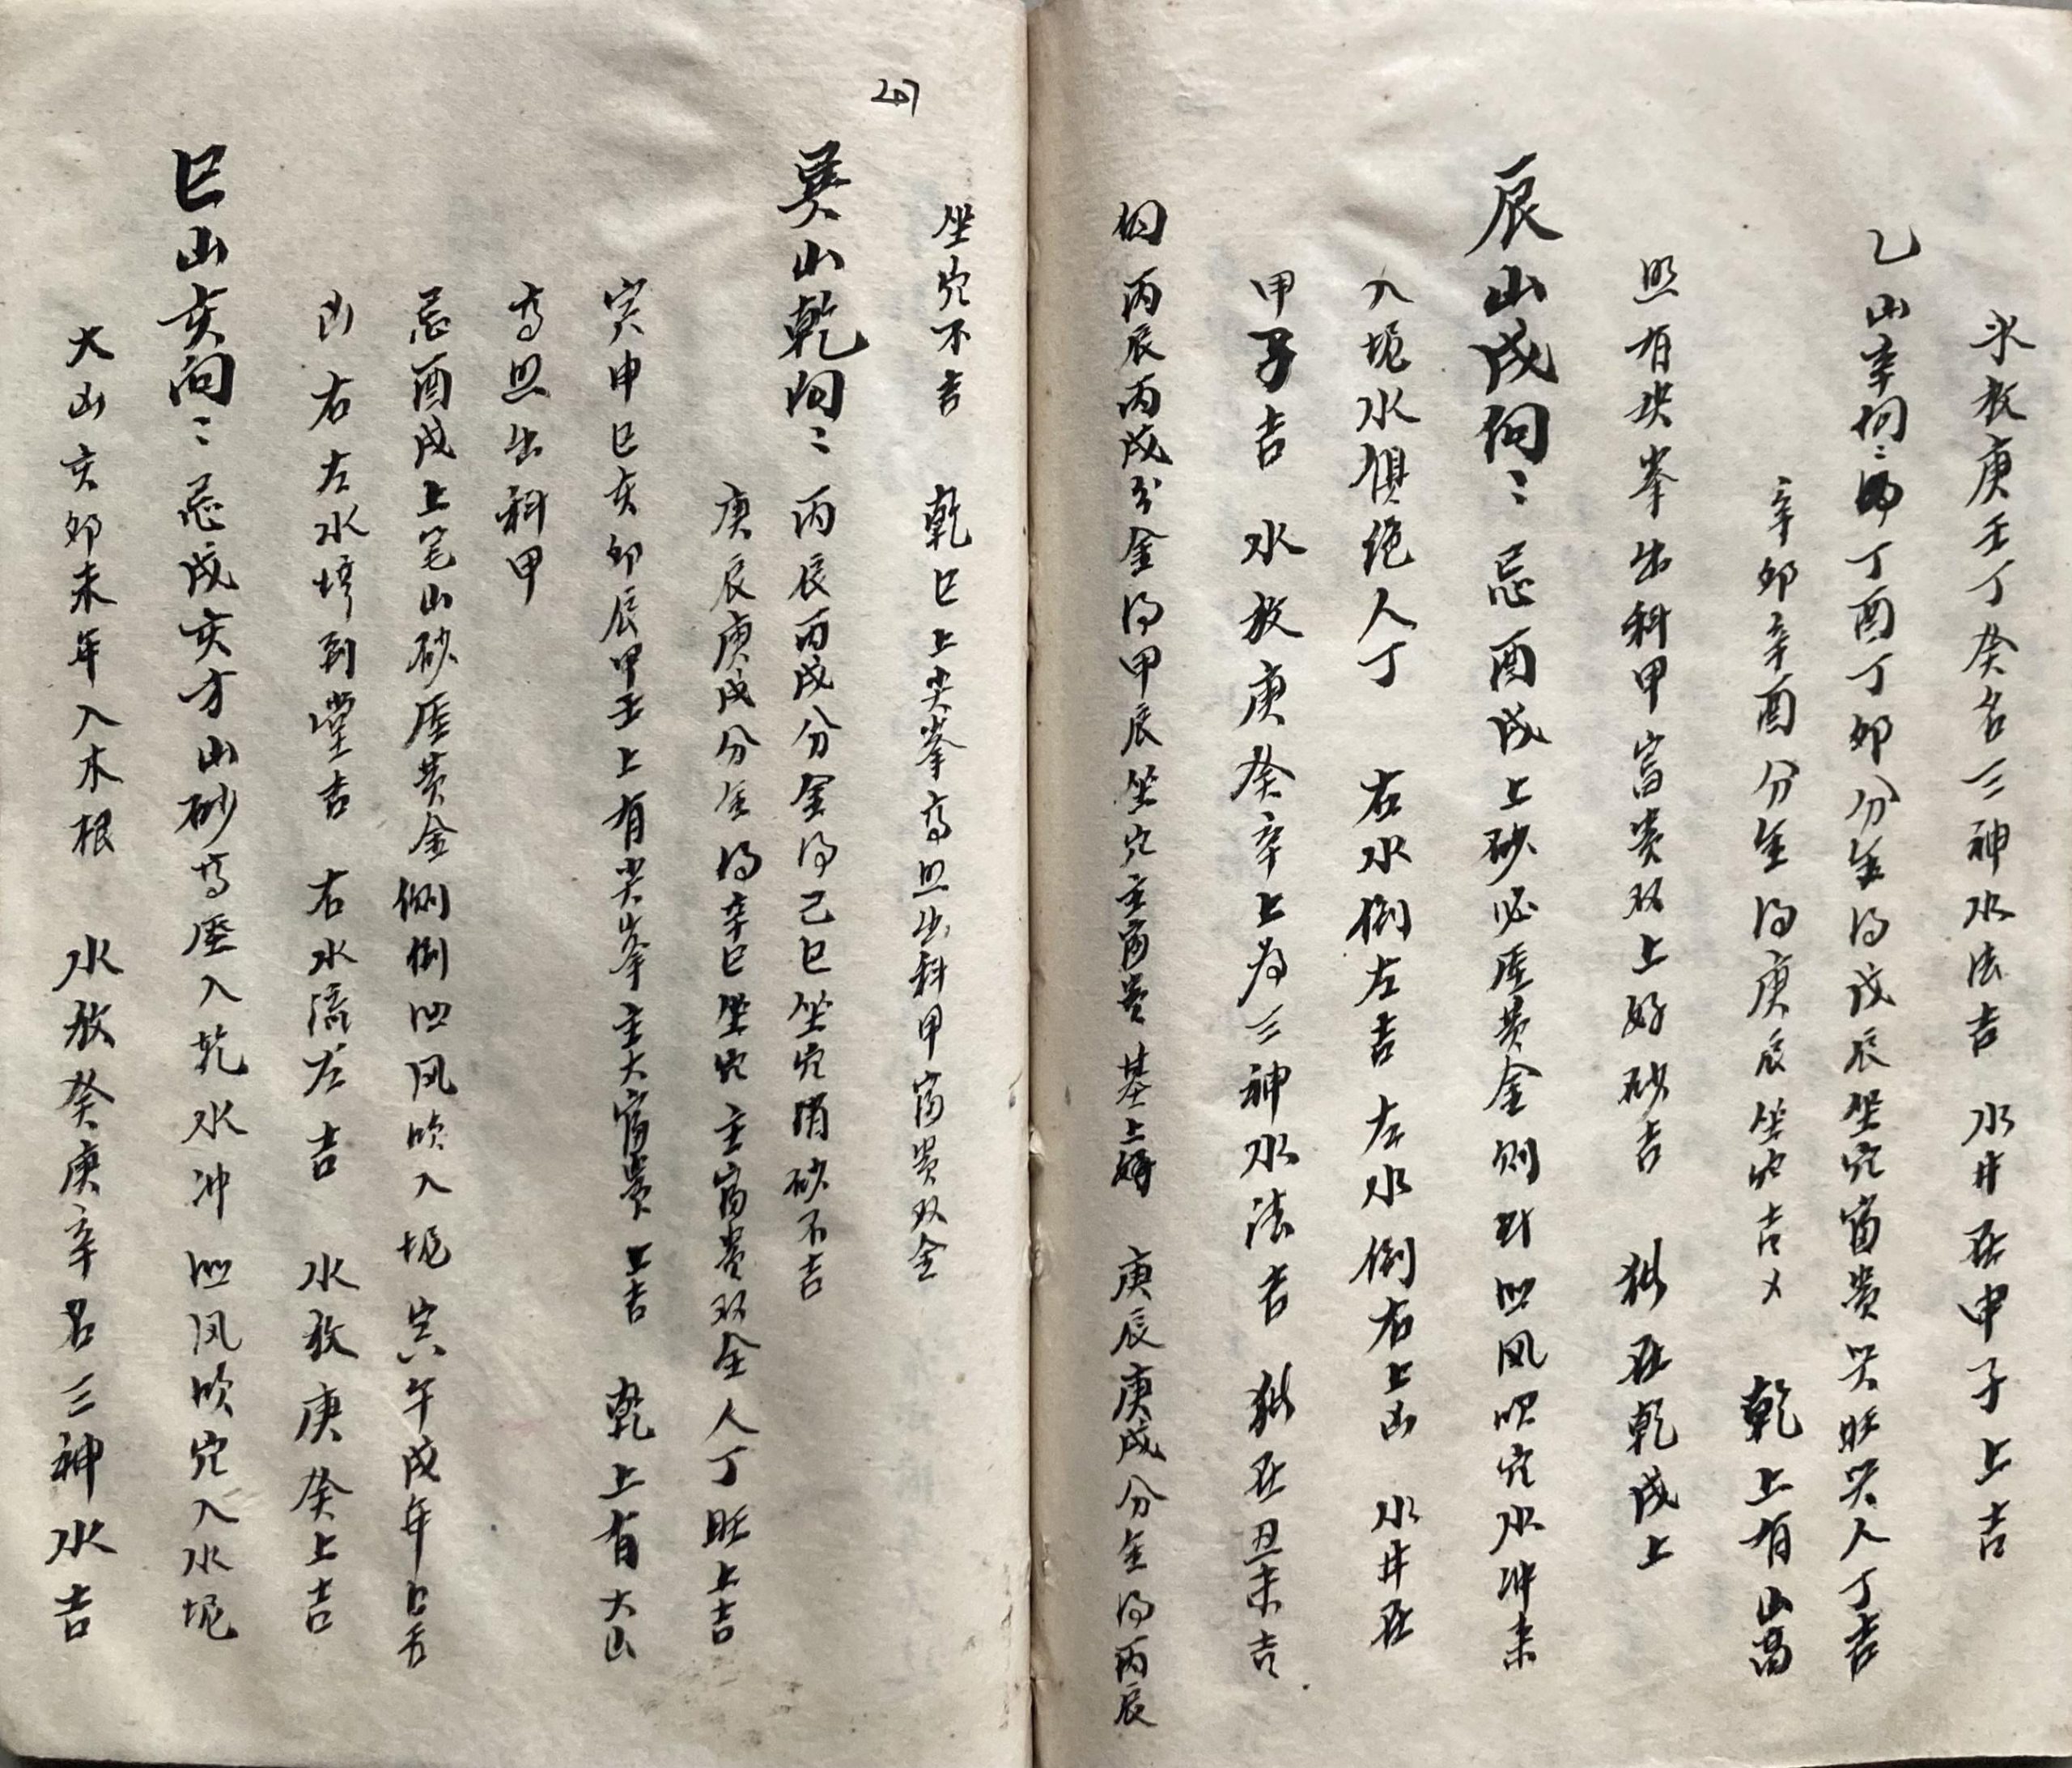 水放庚壬丁癸名三神水法吉 水井在申子上吉
乙山辛向:丁酉丁卯分金得戊辰坐穴富贵兴旺兴人丁吉
辛卯辛酉分金得庚辰坐穴吉 乾上有山高
照有尖峯出科甲富贵双上好砂吉 在乾戌上
辰山戌向:忌酉戌上砂必压黄金则凹风吹穴水冲来
入坭水俱绝人丁 右水倒左吉左水倒右上凶 水井在
甲子吉 水放庚癸辛上为三神水法吉 在丑未吉
向丙辰丙戌分金得甲辰坐穴主富贵 基上好 庚辰庚戌分金得丙辰
坐穴不吉 乾巳上尖峯高照出科甲富贵双全
207
巽山乾向:丙辰丙戌分金得己巳坐穴消砂不吉
庚辰庚戌分金得辛巳坐穴主富贵双全人丁旺上吉
寅申巳亥卯辰甲壬上有尖峯主大富贵上吉 乾上有大山
高照出科甲
忌酉戌上笔山砂压黄金倒凹风吹入坭 寅午戌年
凶右左水到堂吉 右水流左吉 水放庚癸上吉
巳山亥向:忌戌亥方山砂高压入乾水冲凹风吹穴入水坭
大山亥卯未年入木根 水放癸庚辛名三神水吉